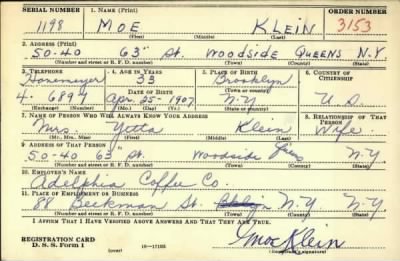 SERIAL NUMBER 1. NAME (Print) ORDER NUMBER
1198 MOE KLEIN 3153
(First) (Middle) (Last)
2. ADDRESS (Print)
50-40 63" St. Woodside Queens N.Y
(Number and street or R. F. D. number) (Town) (County) (State)
3. TELEPHONE 4. AGE IN YEARS 5. PLACE OF BIRTH 6. COUNTRY OF CITIZENSHIP
Havemeyer 33 Brooklyn
DATE OF BIRTH (Town or county)
4-6897 Apr. 25-1907 N.Y U.S
(Exchange) (Number) (Mo.) (Day) (Yr.) (State or country)
7. NAME OF PERSON WHO WILL ALWAYS KNOW YOUR ADDRESS 8. RELATIONSHIP OF THAT PERSON
Mrs. Yetta Klein Wife
(Mr., Mrs., Miss) (First) (Middle) (Last)
9. ADDRESS OF THAT PERSON
50-40 63" St. Woodside N.Y
(Number and street or R. F. D. number) (Town) (County) (State)
10. EMPLOYER'S NAME
Adelphia Coffee Co.
11. PLACE OF EMPLOYMENT OR BUSINESS
88 Beekman St. N.Y N.Y
(Number and street or R. F. D. number) (Town) (County) (State)
I AFFIRM THAT I HAVE VERIFIED ABOVE ANSWERS AND THAT THEY ARE TRUE.
REGISTRATION CARD
D. S. S. Form 1 (over) 16-17105 Moe Klein
(Registrant's signature)